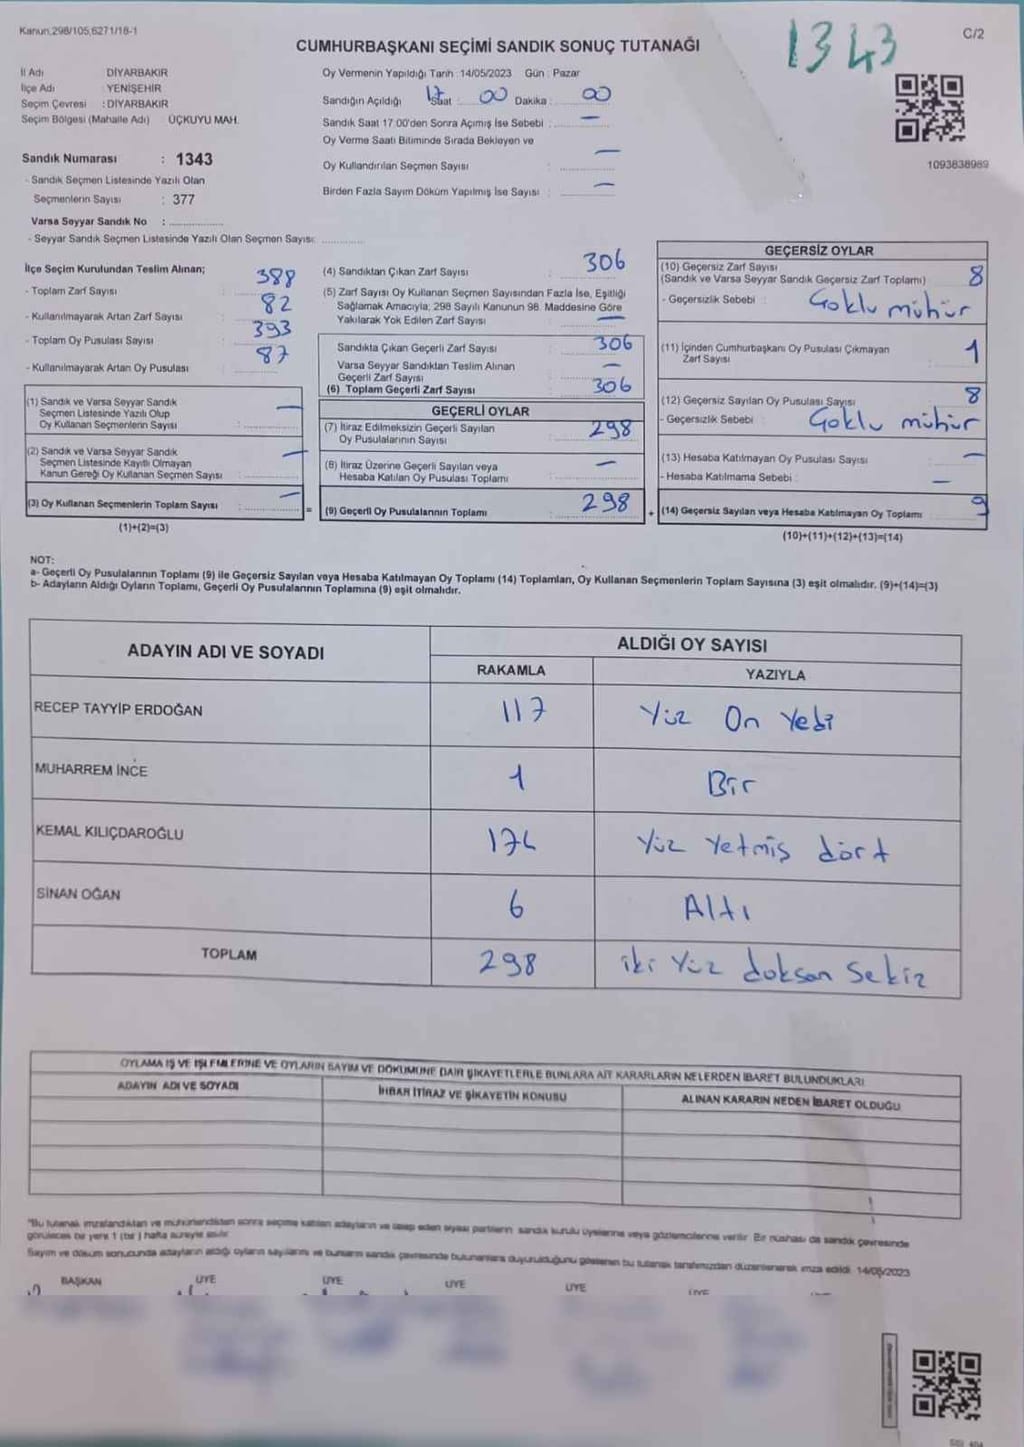 Kanun,298/105,6271/18-1
CUMHURBAŞKANI SEÇİMİ SANDIK SONUÇ TUTANAĞI
1343
C/2
İl Adı : DİYARBAKIR
İlçe Adı : YENİŞEHİR
Seçim Çevresi : DİYARBAKIR
Seçim Bölgesi (Mahalle Adı) ÜÇKUYU MAH.
Sandık Numarası : 1343
- Sandık Seçmen Listesinde Yazılı Olan
Seçmenlerin Sayısı : 377
Varsa Seyyar Sandık No :
- Seyyar Sandık Seçmen Listesinde Yazılı Olan Seçmen Sayısı:
Oy Vermenin Yapıldığı Tarih :14/05/2023 Gün : Pazar
Sandığın Açıldığı 17 Saat : 00 Dakika : 00
Sandık Saat 17:00'den Sonra Açımış İse Sebebi : —
Oy Verme Saati Bitiminde Sırada Bekleyen ve
Oy Kullandırılan Seçmen Sayısı : —
Birden Fazla Sayım Döküm Yapılmış İse Sayısı : —
1093838989
İlçe Seçim Kurulundan Teslim Alınan;
- Toplam Zarf Sayısı : 388
- Kullanılmayarak Artan Zarf Sayısı : 82
- Toplam Oy Pusulası Sayısı : 393
- Kullanılmayarak Artan Oy Pusulası : 87
(1) Sandık ve Varsa Seyyar Sandık
Seçmen Listesinde Yazılı Olup
Oy Kullanan Seçmenlerin Sayısı : —
(2) Sandık ve Varsa Seyyar Sandık
Seçmen Listesinde Kayıtlı Olmayan
Kanun Gereği Oy Kullanan Seçmen Sayısı : —
(3) Oy Kullanan Seçmenlerin Toplam Sayısı : —
(1)+(2)=(3)
(4) Sandıktan Çıkan Zarf Sayısı : 306
(5) Zarf Sayısı Oy Kullanan Seçmen Sayısından Fazla İse, Eşitliği
Sağlamak Amacıyla; 298 Sayılı Kanunun 98. Maddesine Göre
Yakılarak Yok Edilen Zarf Sayısı : —
Sandıkta Çıkan Geçerli Zarf Sayısı : 306
Varsa Seyyar Sandıktan Teslim Alınan
Geçerli Zarf Sayısı : —
(6) Toplam Geçerli Zarf Sayısı : 306
GEÇERLİ OYLAR
(7) İtiraz Edilmeksizin Geçerli Sayılan
Oy Pusulalarının Sayısı : 298
(8) İtiraz Üzerine Geçerli Sayılan veya
Hesaba Katılan Oy Pusulası Toplamı : —
= (9) Geçerli Oy Pusulalarının Toplamı : 298
GEÇERSİZ OYLAR
(10) Geçersiz Zarf Sayısı
(Sandık ve Varsa Seyyar Sandık Geçersiz Zarf Toplamı) : 8
- Geçersizlik Sebebi : Çoklu mühür
(11) İçinden Cumhurbaşkanı Oy Pusulası Çıkmayan
Zarf Sayısı : 1
(12) Geçersiz Sayılan Oy Pusulası Sayısı : 8
- Geçersizlik Sebebi : Çoklu mühür
(13) Hesaba Katılmayan Oy Pusulası Sayısı : —
- Hesaba Katılmama Sebebi : —
+ (14) Geçersiz Sayılan veya Hesaba Katılmayan Oy Toplamı : 9
(10)+(11)+(12)+(13)=(14)
NOT:
a- Geçerli Oy Pusulalarının Toplamı (9) ile Geçersiz Sayılan veya Hesaba Katılmayan Oy Toplamı (14) Toplamları, Oy Kullanan Seçmenlerin Toplam Sayısına (3) eşit olmalıdır. (9)+(14)=(3)
b- Adayların Aldığı Oyların Toplamı, Geçerli Oy Pusulalarının Toplamına (9) eşit olmalıdır.
ADAYIN ADI VE SOYADI ALDIĞI OY SAYISI
RAKAMLA YAZIYLA
RECEP TAYYİP ERDOĞAN 117 Yüz On Yedi
MUHARREM İNCE 1 Bir
KEMAL KILIÇDAROĞLU 174 Yüz Yetmiş dört
SİNAN OĞAN 6 Altı
TOPLAM 298 iki Yüz doksan Sekiz
OYLAMA İŞ VE İŞLEMLERİNE VE OYLARIN SAYIM VE DÖKÜMÜNE DAİR ŞİKAYETLERLE BUNLARA AİT KARARLARIN NELERDEN İBARET BULUNDUKLARI
ADAYIN ADI VE SOYADI İHBAR İTİRAZ VE ŞİKAYETİN KONUSU ALINAN KARARIN NEDEN İBARET OLDUĞU
"Bu tutanak imzalandıktan ve mühürlendikten sonra seçime katılan adayların ve talep eden siyasi partilerin sandık kurulu üyelerine veya gözlemcilerine verilir. Bir nüshası da sandık çevresinde
görülecek bir yere 1 (bir) hafta süreyle asılır.
Sayım ve döküm sonucunda adayların aldığı oyların sayılarını ve bunların sandık çevresinde bulunanlara duyurulduğunu gösteren bu tutanak tarafımızdan düzenlenerek imza edildi. 14/05/2023
BAŞKAN ÜYE ÜYE ÜYE ÜYE ÜYE